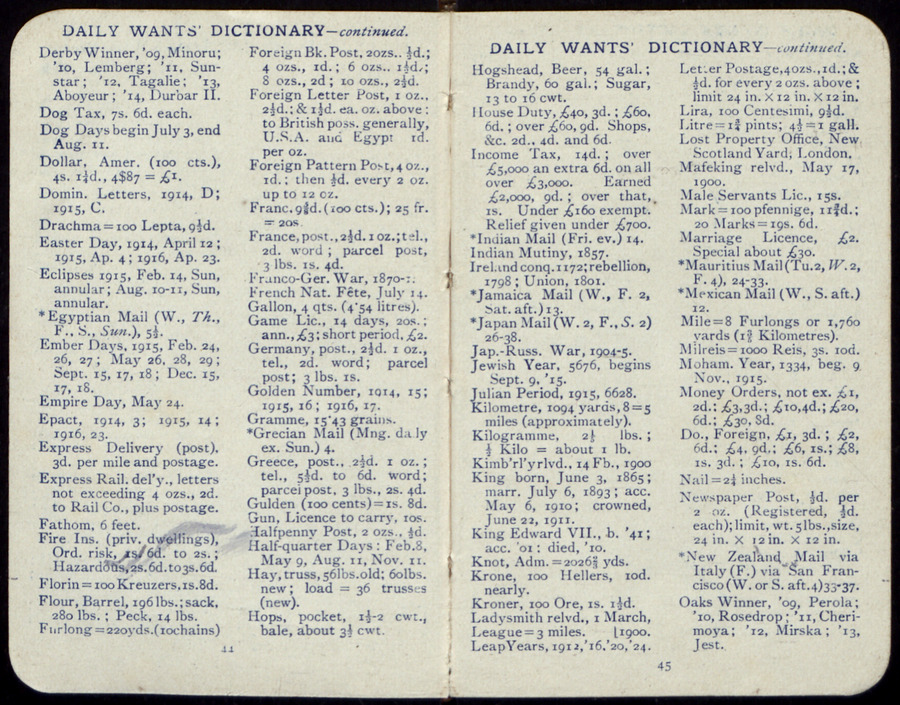 DAILY WANTS' DICTIONARY—continued.
Derby Winner, '09, Minoru;
'10, Lemberg; '11, Sun-
star; '12, Tagalie; '13,
Aboyeur; '14, Durbar II.
Dog Tax, 7s. 6d. each.
Dog Days begin July 3, end
Aug. 11.
Dollar, Amer. (100 cts.),
4s. 1½d., 4$87 = £1.
Domin. Letters, 1914, D;
1915, C.
Drachma = 100 Lepta, 9½d.
Easter Day, 1914, April 12;
1915, Ap. 4; 1916, Ap. 23.
Eclipses 1915, Feb. 14, Sun,
annular; Aug. 10-11, Sun,
annular.
*Egyptian Mail (W., Th.,
F., S., Sun.), 5½.
Ember Days, 1915, Feb. 24,
26, 27; May 26, 28, 29;
Sept. 15, 17, 18; Dec. 15,
17, 18.
Empire Day, May 24.
Epact, 1914, 3; 1915, 14;
1916, 23.
Express Delivery (post),
3d. per mile and postage.
Express Rail. del'y., letters
not exceeding 4 ozs., 2d.
to Rail Co., plus postage.
Fathom, 6 feet.
Fire Ins. (priv. dwellings),
Ord. risk, 1s/6d. to 2s.;
Hazardous, 2s.6d.to3s.6d.
Florin = 100 Kreuzers, 1s.8d.
Flour, Barrel, 196 lbs.; sack,
280 lbs.; Peck, 14 lbs.
Furlong = 220yds. (10chains)
44
Foreign Bk. Post, 2ozs.. ½d.;
4 ozs., 1d.; 6 ozs.. 1½d.;
8 ozs., 2d; 10 ozs., 2½d.
Foreign Letter Post, 1 oz.,
2½d.; & 1½d. ea. oz. above:
to British poss. generally,
U.S.A. and Egypt 1d.
per oz.
Foreign Pattern Post, 4 oz.,
1d.; then ½d. every 2 oz.
up to 12 oz.
Franc. 9⅝d. (100 cts.); 25 fr.
= 20s.
France, post., 2½d. 1 oz.; tel.,
2d. word; parcel post,
3 lbs. 1s. 4d.
Franco-Ger. War, 1870-1.
French Nat. Fête, July 14.
Gallon, 4 qts. (4'54 litres).
Game Lic., 14 days, 20s.;
ann., £3; short period, £2.
Germany, post., 2½d. 1 oz.,
tel., 2d. word; parcel
post; 3 lbs. 1s.
Golden Number, 1914, 15;
1915, 16; 1916, 17.
Gramme, 15'43 grains.
*Grecian Mail (Mng. daily
ex. Sun.) 4.
Greece, post., 2½d. 1 oz.;
tel., 5½d. to 6d. word;
parcel post, 3 lbs., 2s. 4d.
Gulden (100 cents) = 1s. 8d.
Gun, Licence to carry, 10s.
Halfpenny Post, 2 ozs., ½d.
Half-quarter Days: Feb.8,
May 9, Aug. 11, Nov. 11.
Hay, truss, 56lbs.old; 60lbs.
new; load = 36 trusses
(new).
Hops, pocket, 1½-2 cwt.,
bale, about 3½ cwt.
DAILY WANTS' DICTIONARY—continued.
Hogshead, Beer, 54 gal.;
Brandy, 60 gal.; Sugar,
13 to 16 cwt.
House Duty, £40, 3d.; £60,
6d.; over £60, 9d. Shops,
&c. 2d., 4d. and 6d.
Income Tax, 14d.; over
£5,000 an extra 6d. on all
over £3,000. Earned
£2,000, 9d.; over that,
1s. Under £160 exempt.
Relief given under £700.
*Indian Mail (Fri. ev.) 14.
Indian Mutiny, 1857.
Ireland conq. 1172; rebellion,
1798; Union, 1801.
*Jamaica Mail (W., F. 2,
Sat. aft.) 13.
*Japan Mail (W. 2, F., S. 2)
26-38.
Jap.-Russ. War, 1904-5.
Jewish Year, 5676, begins
Sept. 9, '15.
Julian Period, 1915, 6628.
Kilometre, 1094 yards, 8=5
miles (approximately).
Kilogramme, 2⅕ lbs.;
½ Kilo = about 1 lb.
Kimb'rl'yrlvd., 14 Fb., 1900
King born, June 3, 1865;
marr. July 6, 1893; acc.
May 6, 1910; crowned,
June 22, 1911.
King Edward VII., b. '41;
acc. '01: died, '10.
Knot, Adm. = 2026⅔ yds.
Krone, 100 Hellers, 10d.
nearly.
Kroner, 100 Ore, 1s. 1½d.
Ladysmith relvd., 1 March,
League = 3 miles. [1900.
Leap Years, 1912, '16, '20, '24.
45
Letter Postage, 4ozs., 1d.; &
½d. for every 2 ozs. above;
limit 24 in. × 12 in. × 12 in.
Lira, 100 Centesimi, 9½d.
Litre = 1¾ pints; 4½ = 1 gall.
Lost Property Office, New
Scotland Yard, London.
Mafeking relvd., May 17,
1900.
Male Servants Lic., 15s.
Mark = 100 pfennige, 11¾d.;
20 Marks = 19s. 6d.
Marriage Licence, £2.
Special about £30.
*Mauritius Mail (Tu. 2, W. 2,
F. 4), 24-33.
*Mexican Mail (W., S. aft.)
12.
Mile = 8 Furlongs or 1,760
yards (1⅗ Kilometres).
Milreis = 1000 Reis, 3s. 10d.
Moham. Year, 1334, beg. 9
Nov., 1915.
Money Orders, not ex. £1,
2d.; £3, 3d.; £10, 4d.; £20,
6d.; £30, 8d.
Do., Foreign, £1, 3d.; £2,
6d.; £4, 9d.; £6, 1s.; £8,
1s. 3d.; £10, 1s. 6d.
Nail = 2¼ inches.
Newspaper Post, ½d. per
2 oz. (Registered, ½d.
each); limit, wt. 5lbs., size,
24 in. × 12 in. × 12 in.
*New Zealand Mail via
Italy (F.) via San Fran-
cisco (W. or S. aft. 4) 33-37.
Oaks Winner, '09, Perola;
'10, Rosedrop; '11, Cheri-
moya; '12, Mirska; '13,
Jest.